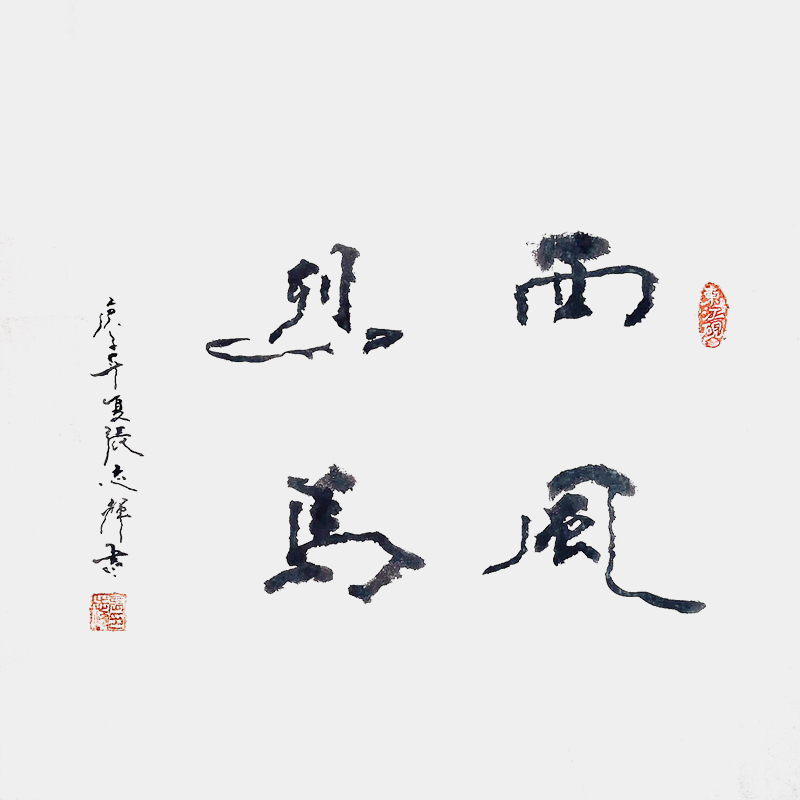 東江硯
西風
烈馬
庚子年夏張志輝書